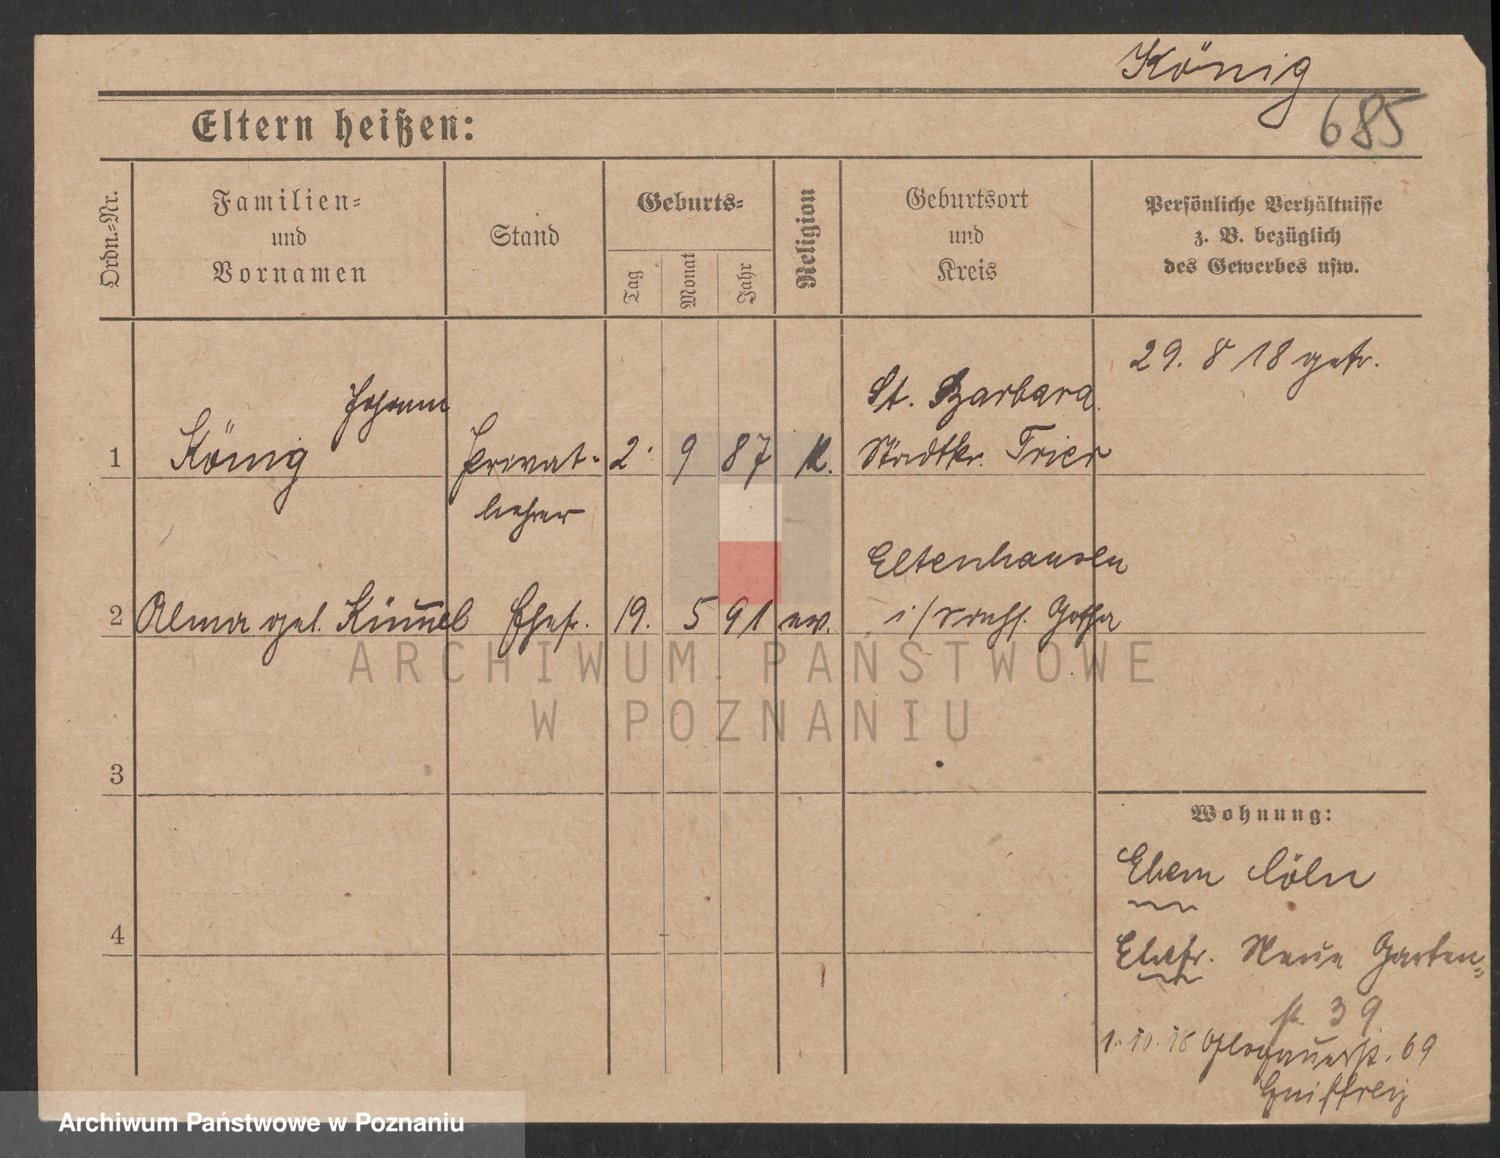 König
685
Eltern heißen:
Ordn.-Nr.
Familien-
und
Vornamen
Stand
Geburts-
Tag
Monat
Jahr
Religion
Geburtsort
und
Kreis
Persönliche Verhältnisse
z. B. bezüglich
des Gewerbes usw.
29. 8 18 getr.
Johann
1 König Privat- 2. 9 87 K. St. Barbara
lehrer Stadtkr. Trier
2 Alma geb. Kümmel Ehefr. 19. 5 91 ev. Eltenhausen
i/ Gotha
3
4
Wohnung:
Ehem Cöln
Ehefr. Neue Garten-
str. 39
1. 10. 18 Glogauerstr. 69
ARCHIWUM PAŃSTWOWE
W POZNANIU
Archiwum Państwowe w Poznaniu